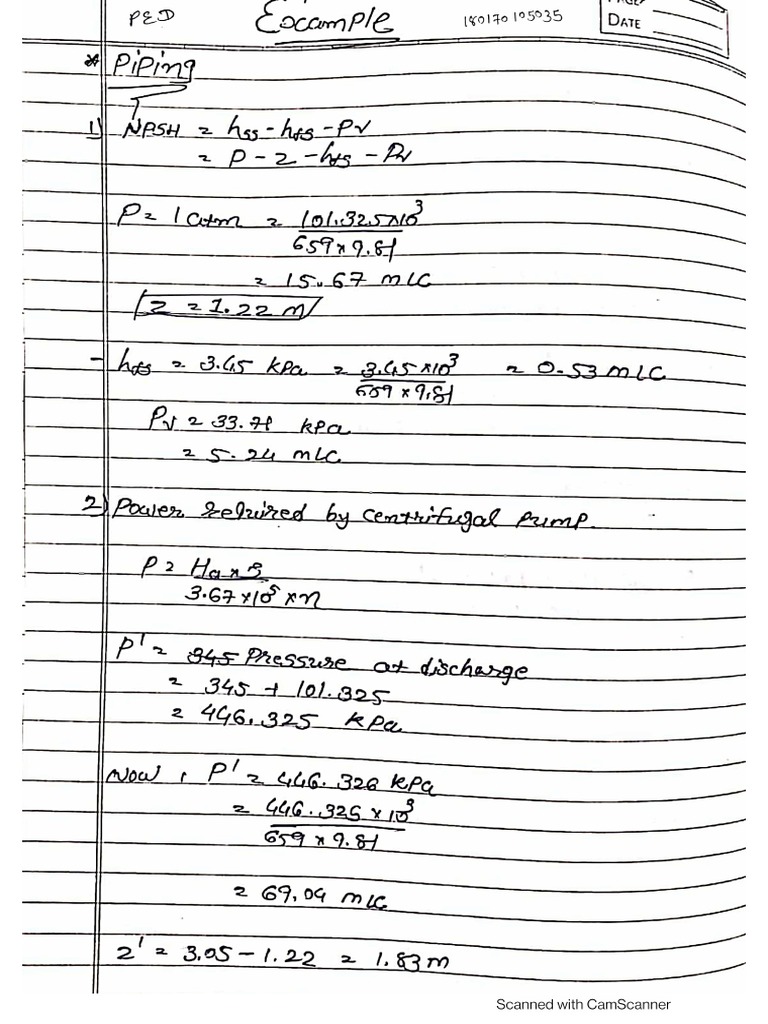 PED Example 180170105035
PAGE:
DATE
* Piping
1) NPSH = hss - hfs - Pv
= P - z - hfs - Pv
P = 1 atm = 101.325×10³
659 × 9.81
= 15.67 mLC
z = 1.22 m
- hfs = 3.45 kPa = 3.45 × 10³ = 0.53 mLC
659 × 9.81
Pv = 33.71 kPa
= 5.24 mLC
2) Power required by centrifugal pump.
P = Ha × Q
3.67 × 10⁵ × η
P' = 345 Pressure at discharge
= 345 + 101.325
= 446.325 kPa
Now, P' = 446.326 kPa
= 446.325 × 10³
659 × 9.81
= 69.04 mLC
z' = 3.05 - 1.22 = 1.83 m
Scanned with CamScanner